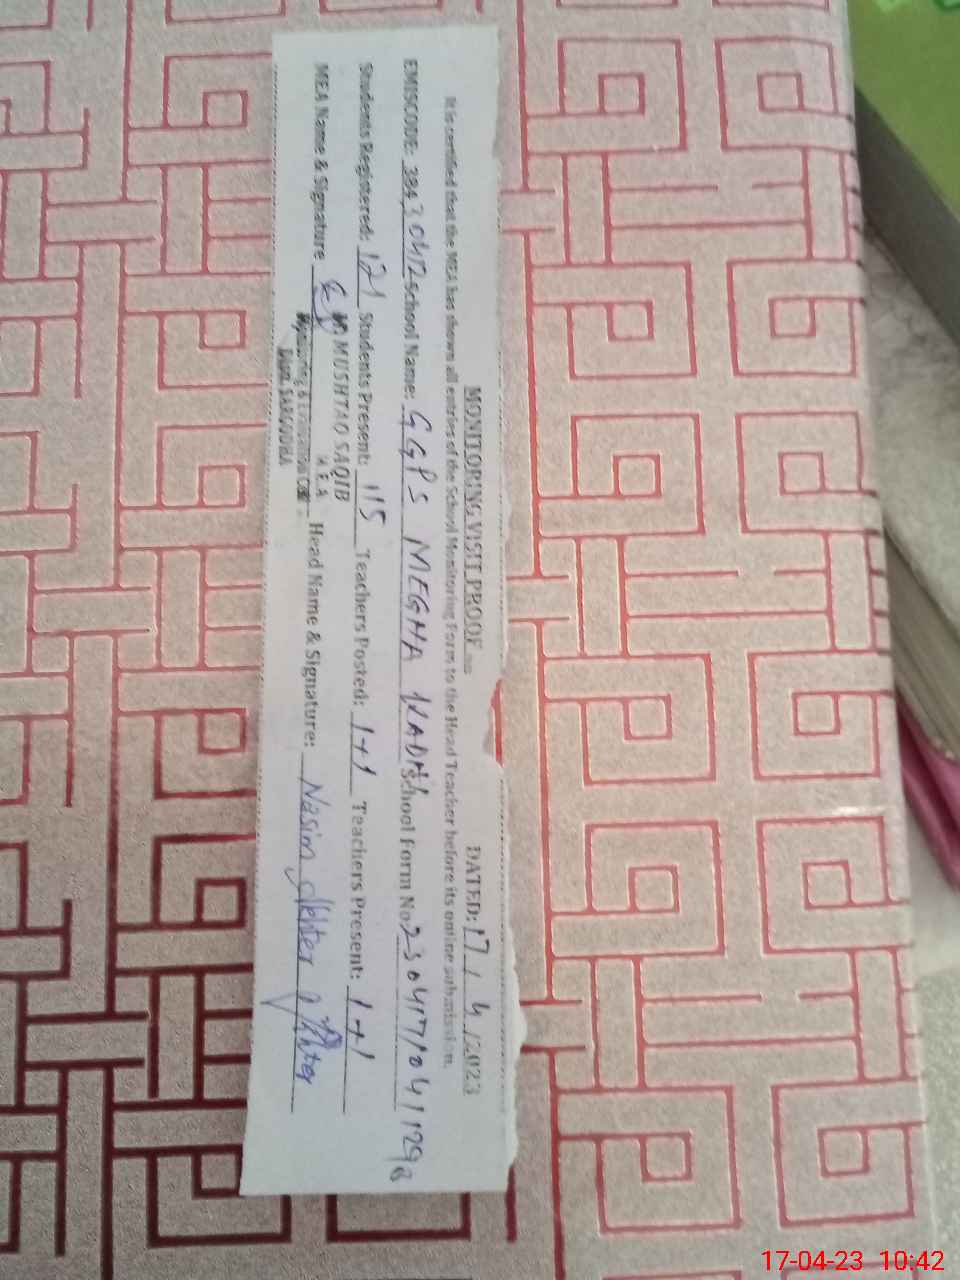 MONITORING VISIT PROOF DATED: 17/4/2023
It is certified that the MEA has shown all entries of the School Monitoring Form to the Head Teacher before its online submission.
EMISCODE: 38430412 School Name: GGPS MEGHA School Form No
Students Registered: 121 Students Present: 115 Teachers Posted: 1+1 Teachers Present: 1+1
MEA Name & Signature MUSHTAQ SAQIB Head Name & Signature: Nasim Akhter
M.E.A
Monitoring & Evaluation
SARGODHA
17-04-23 10:42